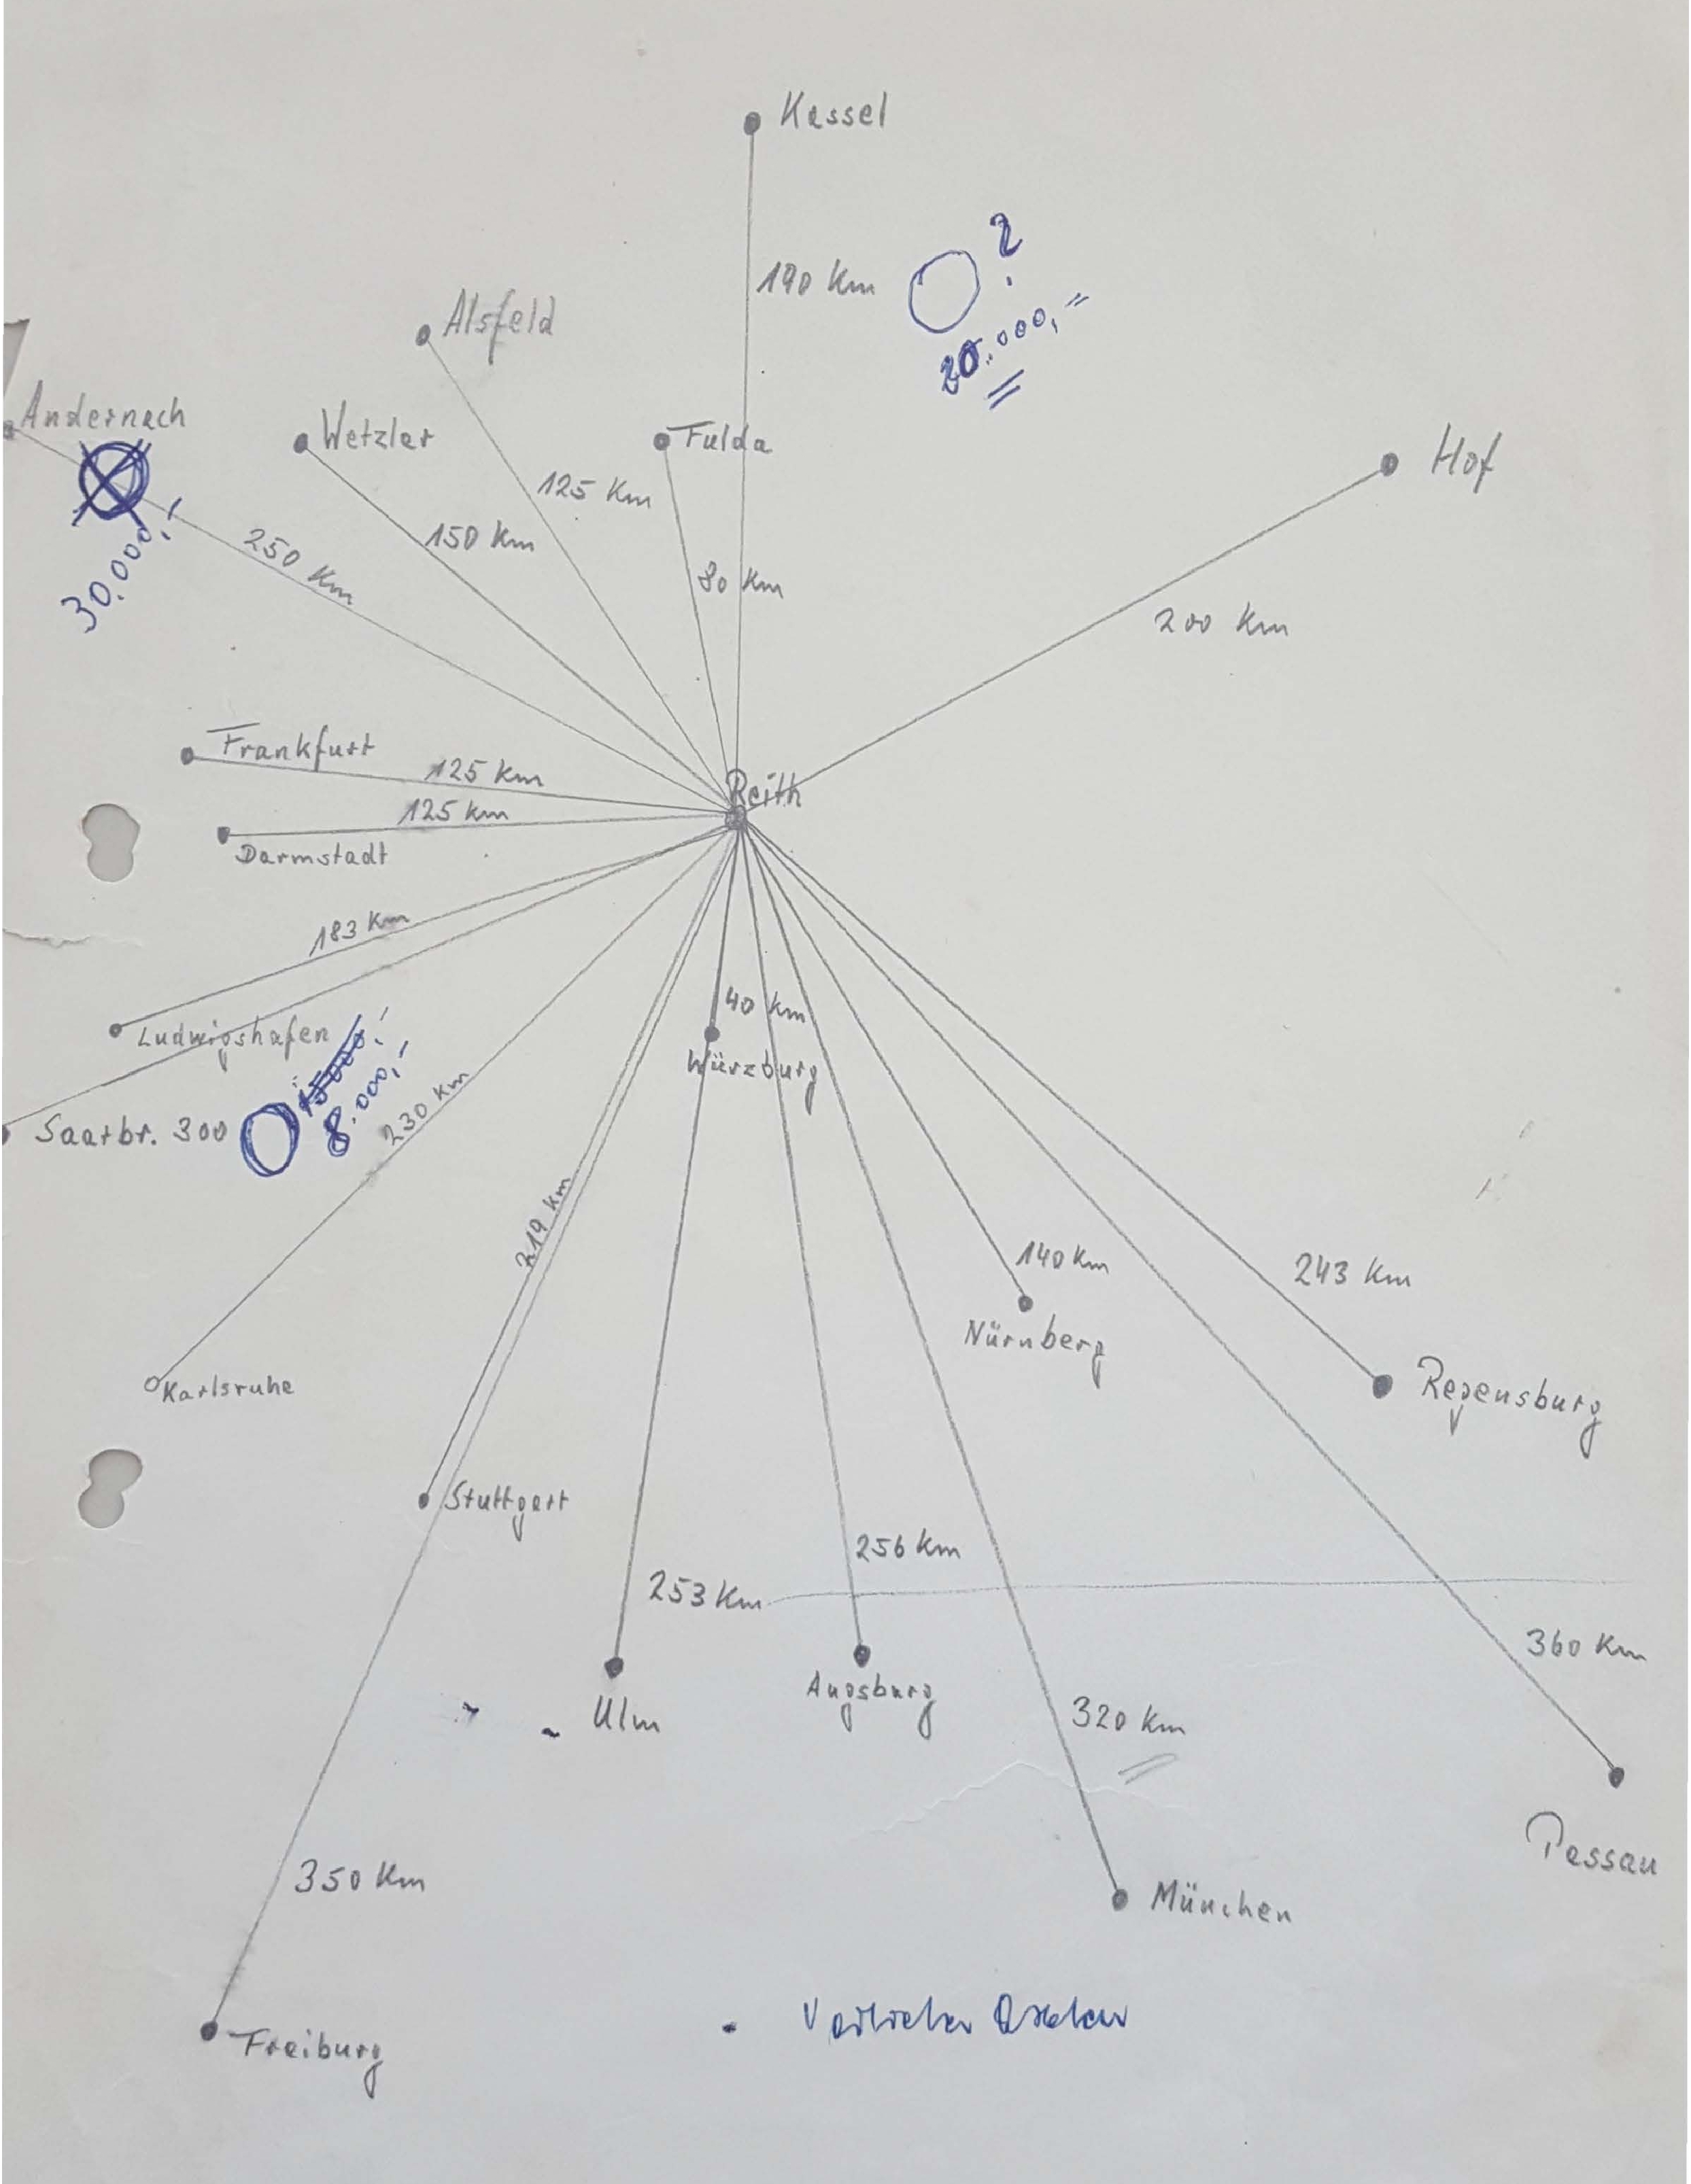 Kassel
190 Km
?
20.000,=
Alsfeld
Andernach
Wetzlar
Fulda
Hof
125 Km
150 Km
250 Km
30.000,-
80 Km
200 Km
Frankfurt
125 Km
Reith
125 Km
Darmstadt
183 Km
40 Km
Ludwigshafen
15000.-
8.000,-
Würzburg
Saarbr. 300
230 Km
219 Km
140 Km
243 Km
Nürnberg
Karlsruhe
Regensburg
Stuttgart
256 Km
253 Km
360 Km
Augsburg
Ulm
320 Km
Passau
350 Km
München
Freiburg